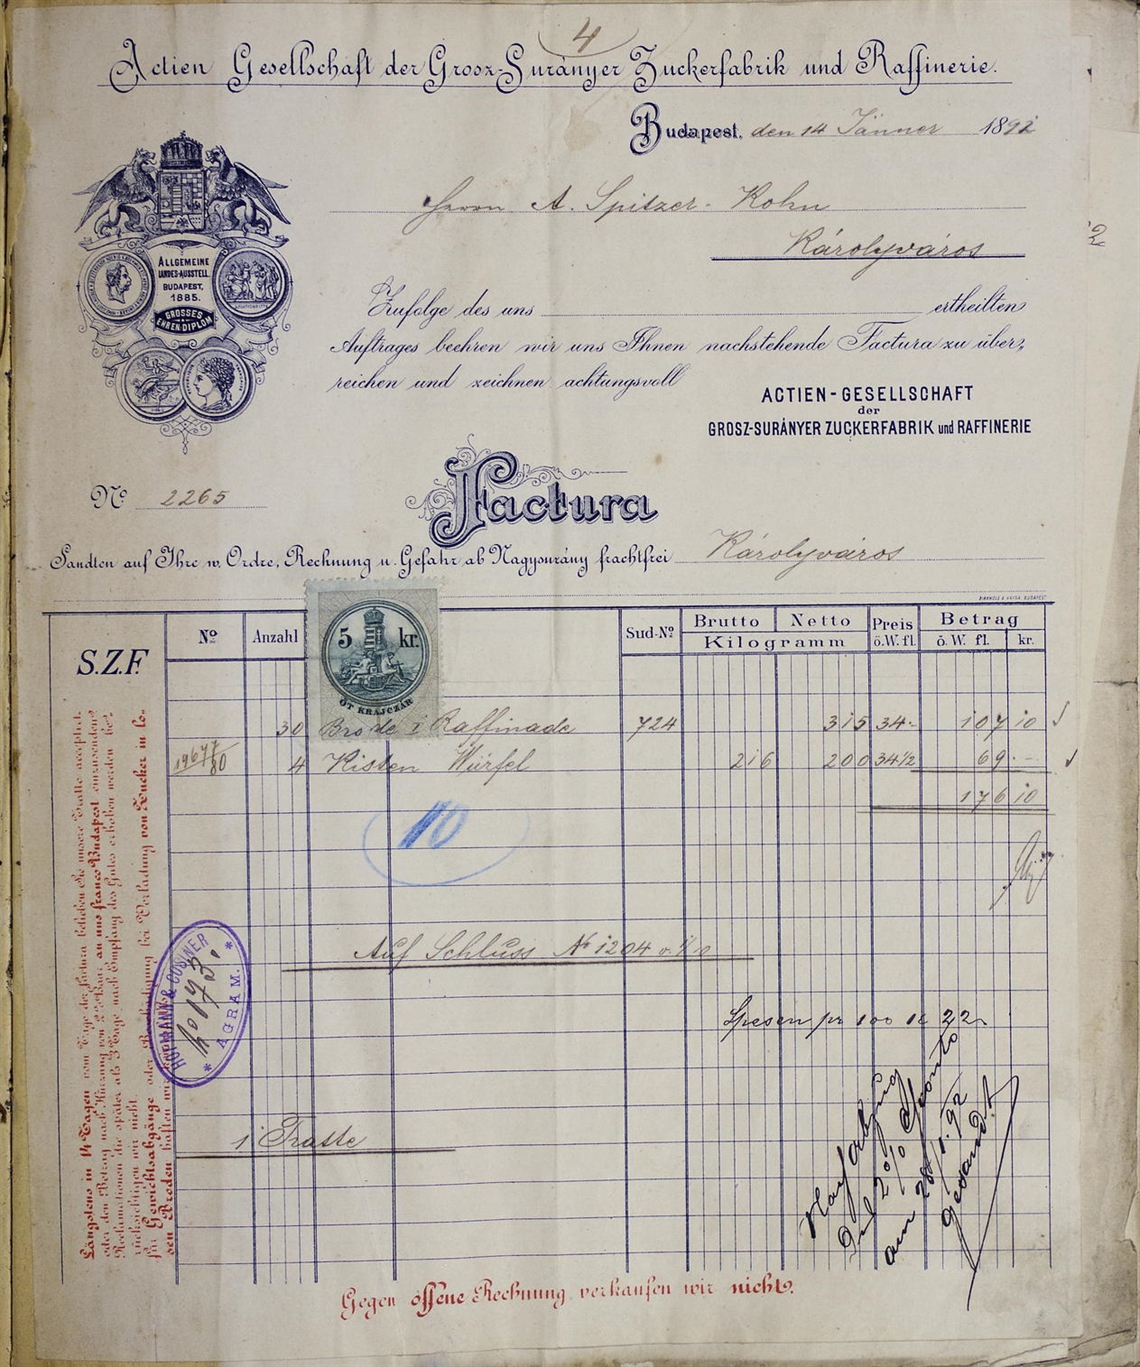 4
Actien Gesellschaft der Grosz-Surányer Zuckerfabrik und Raffinerie.
Budapest, den 14 Jänner 1892
Herrn A. Spitzer-Kohn
Károlyváros
2
ALLGEMEINE
LANDES-AUSSTELL.
BUDAPEST,
1885.
GROSSES
EHREN-DIPLOM
Zufolge des uns ertheilten
Auftrages beehren wir uns Ihnen nachstehende Factura zu über-
reichen und zeichnen achtungsvoll
ACTIEN-GESELLSCHAFT
der
GROSZ-SURÁNYER ZUCKERFABRIK und RAFFINERIE
No 2265
Factura
Sandten auf Ihre w. Ordre, Rechnung u. Gefahr ab Nagysurány frachtfrei Károlyváros
S.Z.F.
No Anzahl Sud-No Brutto Netto Preis Betrag
Kilogramm ö.W. fl. ö. W. fl. kr.
5 kr.
ÖT KRAJCZÁR
30 Brode i Raffinade 724 315 34- 107 10
19677/80 4 Kisten Würfel 216 200 34 1/2 69 --
176 10
10
Auf Schluss No 1204
Spesen pr 100 K 22
1 Tratte
HOFMANN &
No 173.
* AGRAM. *
2% Sconto
am 28/1. 92
gesandt
Längstens in 14 Tagen vom Tage der Factura belieben Sie unsere Tratte acceptirt
oder den Betrag nach Kürzung von 2% Sconto an uns franco Budapest einzusenden.
Reclamationen die später als 3 Tage nach Empfang des Gutes erhoben werden be-
rücksichtigen wir nicht.
für Gewichtsabgänge oder Beschädigung bei Verladung von Zucker in lo-
sen Broden haften wir
Gegen offene Rechnung verkaufen wir nicht.